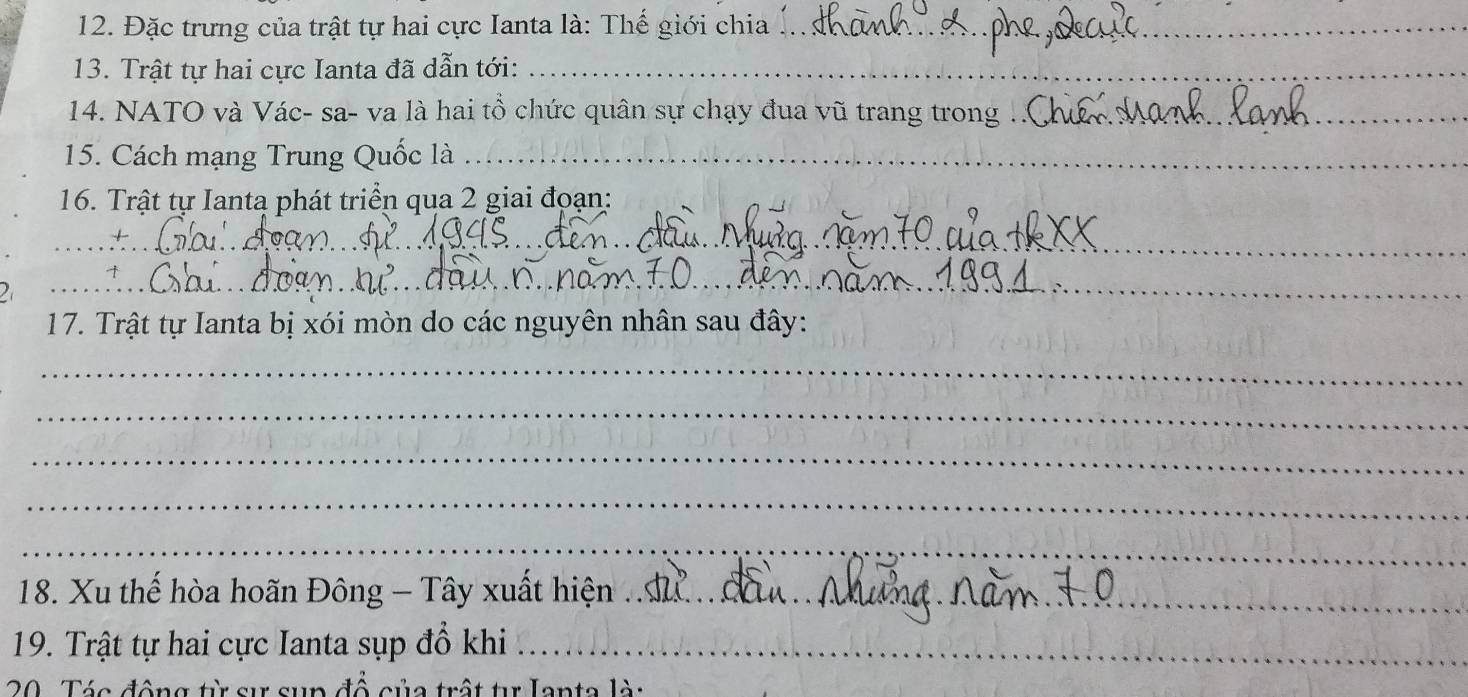 12. Đặc trưng của trật tự hai cực Ianta là: Thế giới chia ... thành 2 phe, 2 cực
13. Trật tự hai cực Ianta đã dẫn tới:
14. NATO và Vác- sa- va là hai tổ chức quân sự chạy đua vũ trang trong ... Chiến tranh lạnh
15. Cách mạng Trung Quốc là
16. Trật tự Ianta phát triển qua 2 giai đoạn:
+ Giai đoạn từ 1945 đến đầu những năm 70 của tk XX
+ Giai đoạn từ đầu n~ năm 70 đến năm 1991.
17. Trật tự Ianta bị xói mòn do các nguyên nhân sau đây:
18. Xu thế hòa hoãn Đông – Tây xuất hiện .. từ đầu những năm 70
19. Trật tự hai cực Ianta sụp đổ khi
20. Tác động từ sự sụp đổ của trật tự Ianta là: